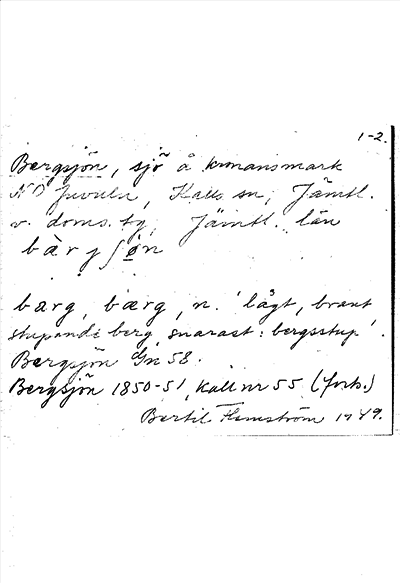 1-2.
Bergsjön, sjö å kronansmark
NO Juvuln, Kalls sn, Jämtl.
v. doms. tg, Jämtl. län
bær, bærg, n. 'lågt, brant
stupande berg, snarast: bergsstup'.
Bergsjön Gn 58.
Bergsjön 1850-51, Kall nr 55 (forts.)
Bertil Flemström 1949.